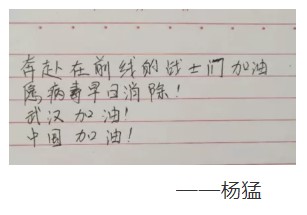 奔赴在前线的战士们加油
愿病毒早日消除！
武汉加油！
中国加油！
——杨猛